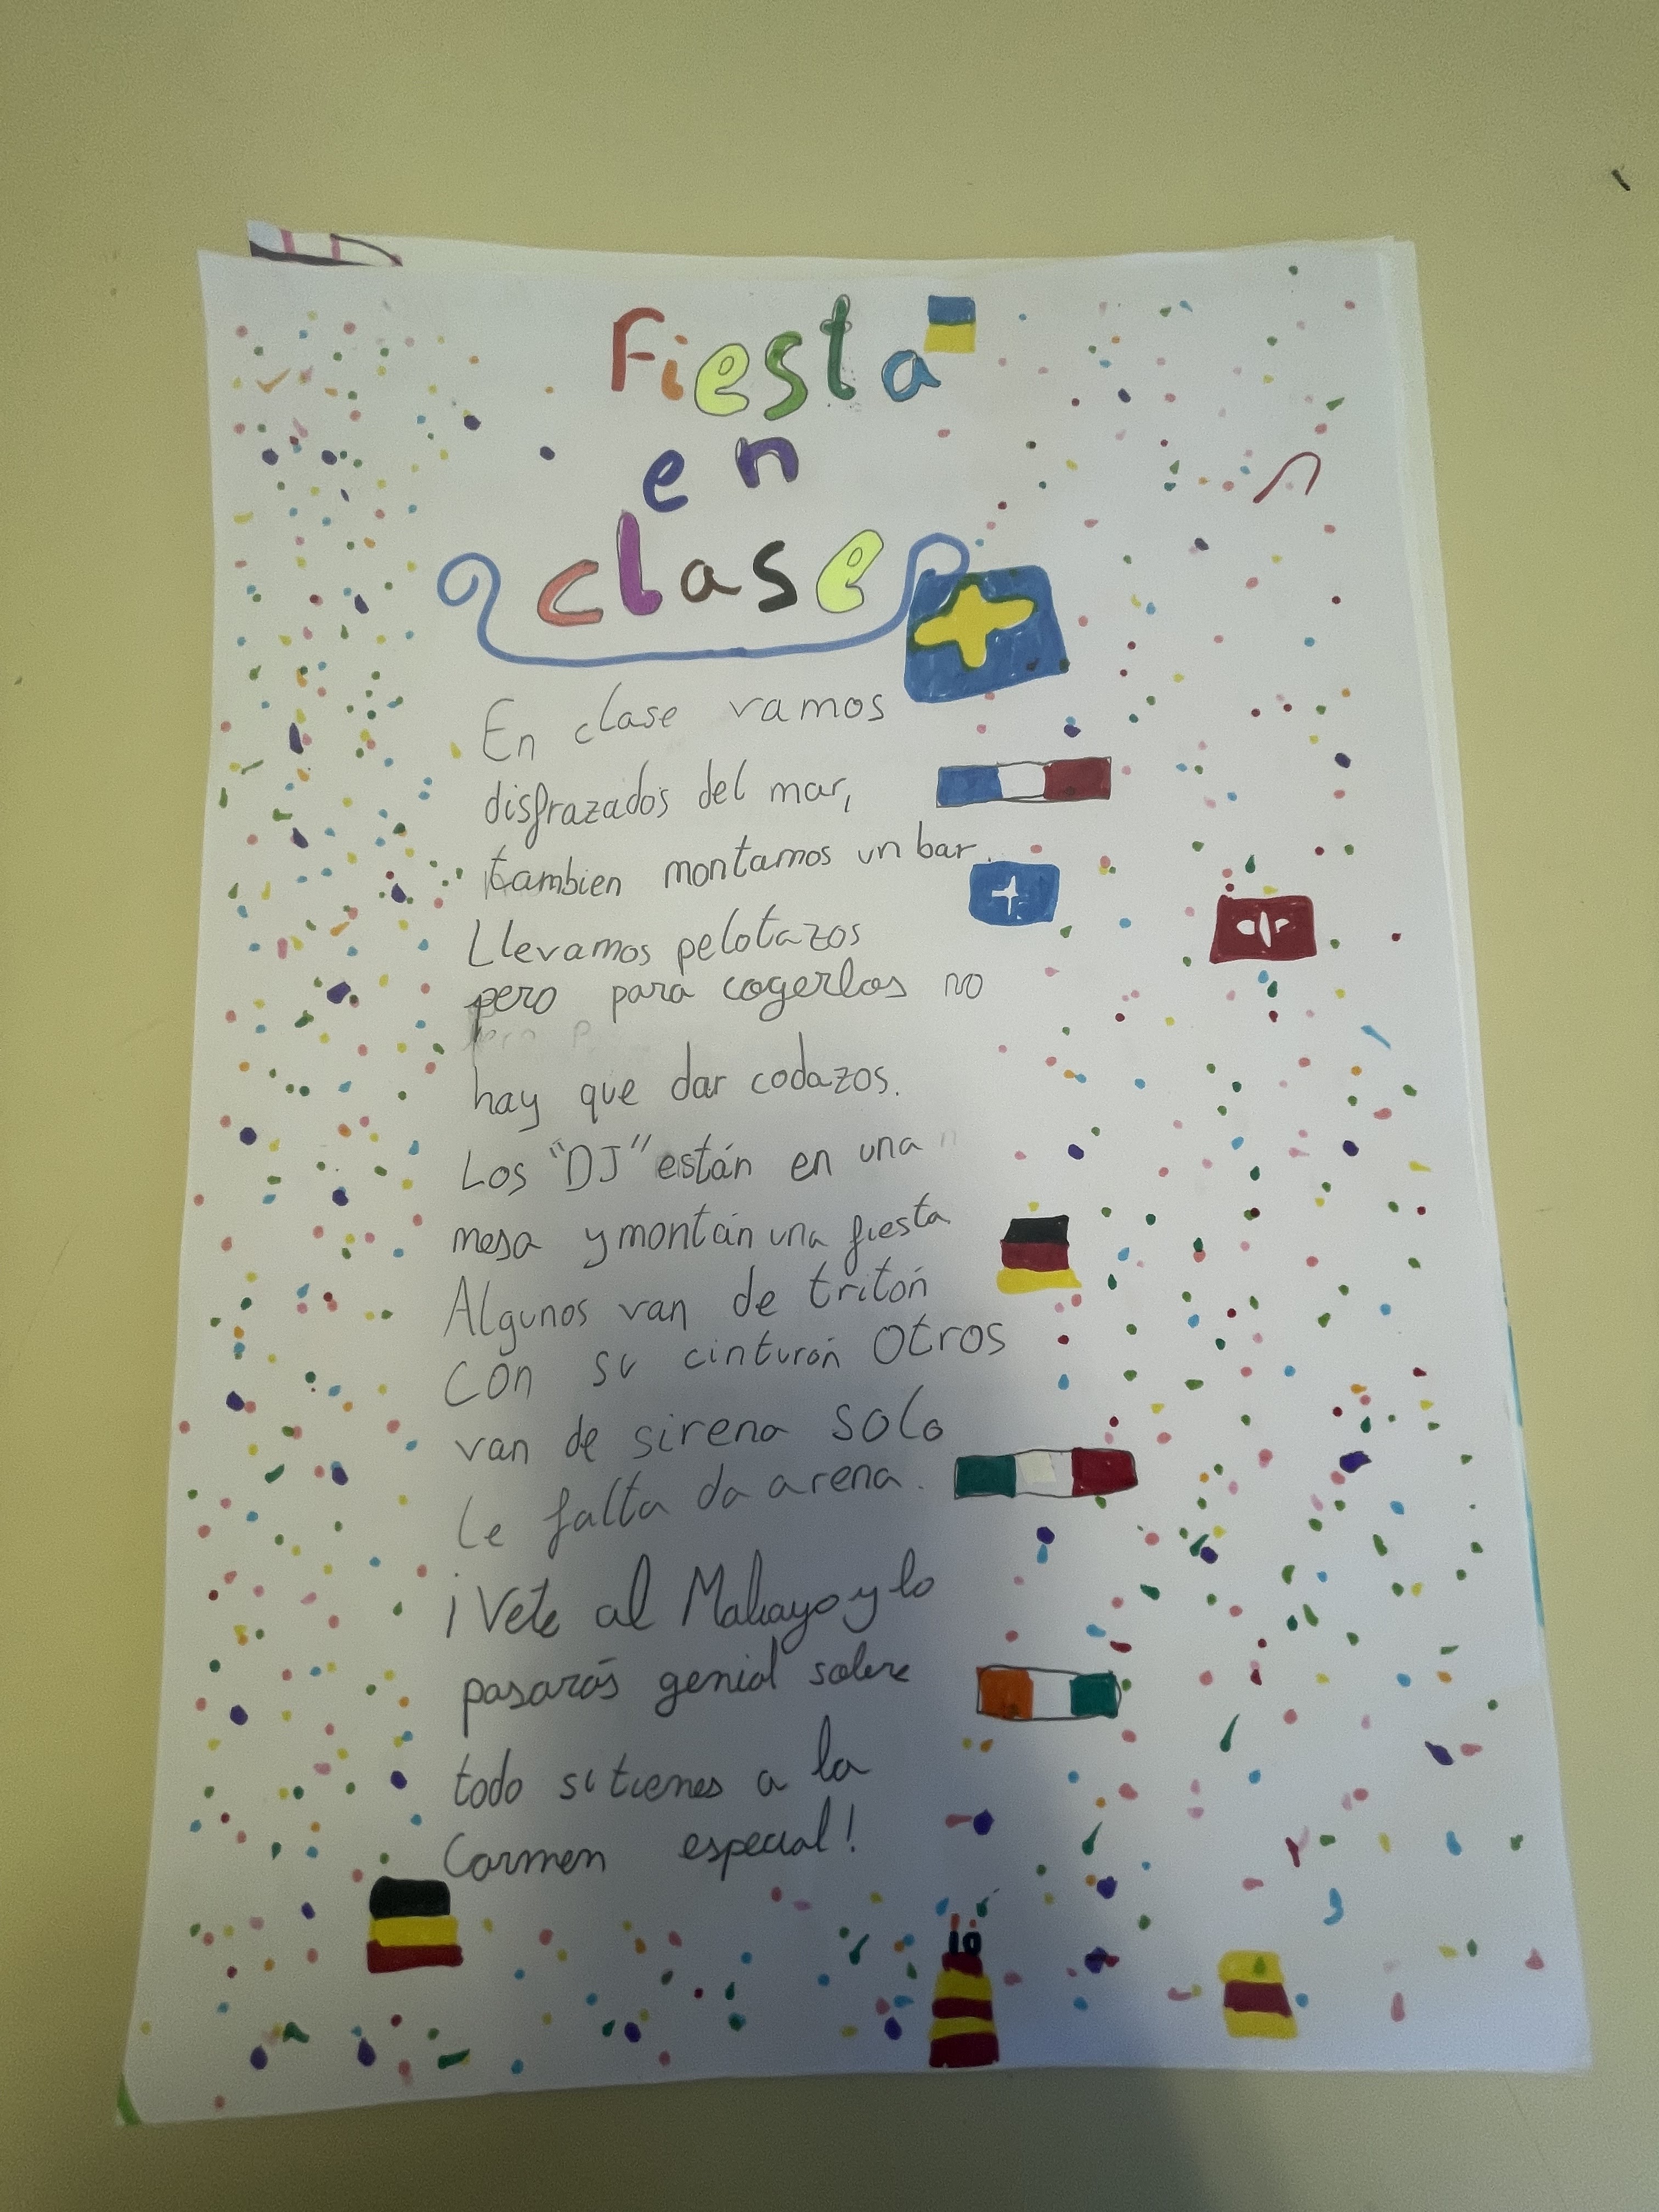 Fiesta
en
clase
En clase vamos
disfrazados del mar,
tambien montamos un bar.
Llevamos pelotazos
pero para cogerlos no
hay que dar codazos.
Los "DJ" están en una
mesa y montán una fiesta
Algunos van de tritón
con su cinturón otros
van de sirena solo
le falta da arena.
¡Vete al Maliayo y lo
pasarás genial sobre
todo si tienes a la
Carmen especial!
10